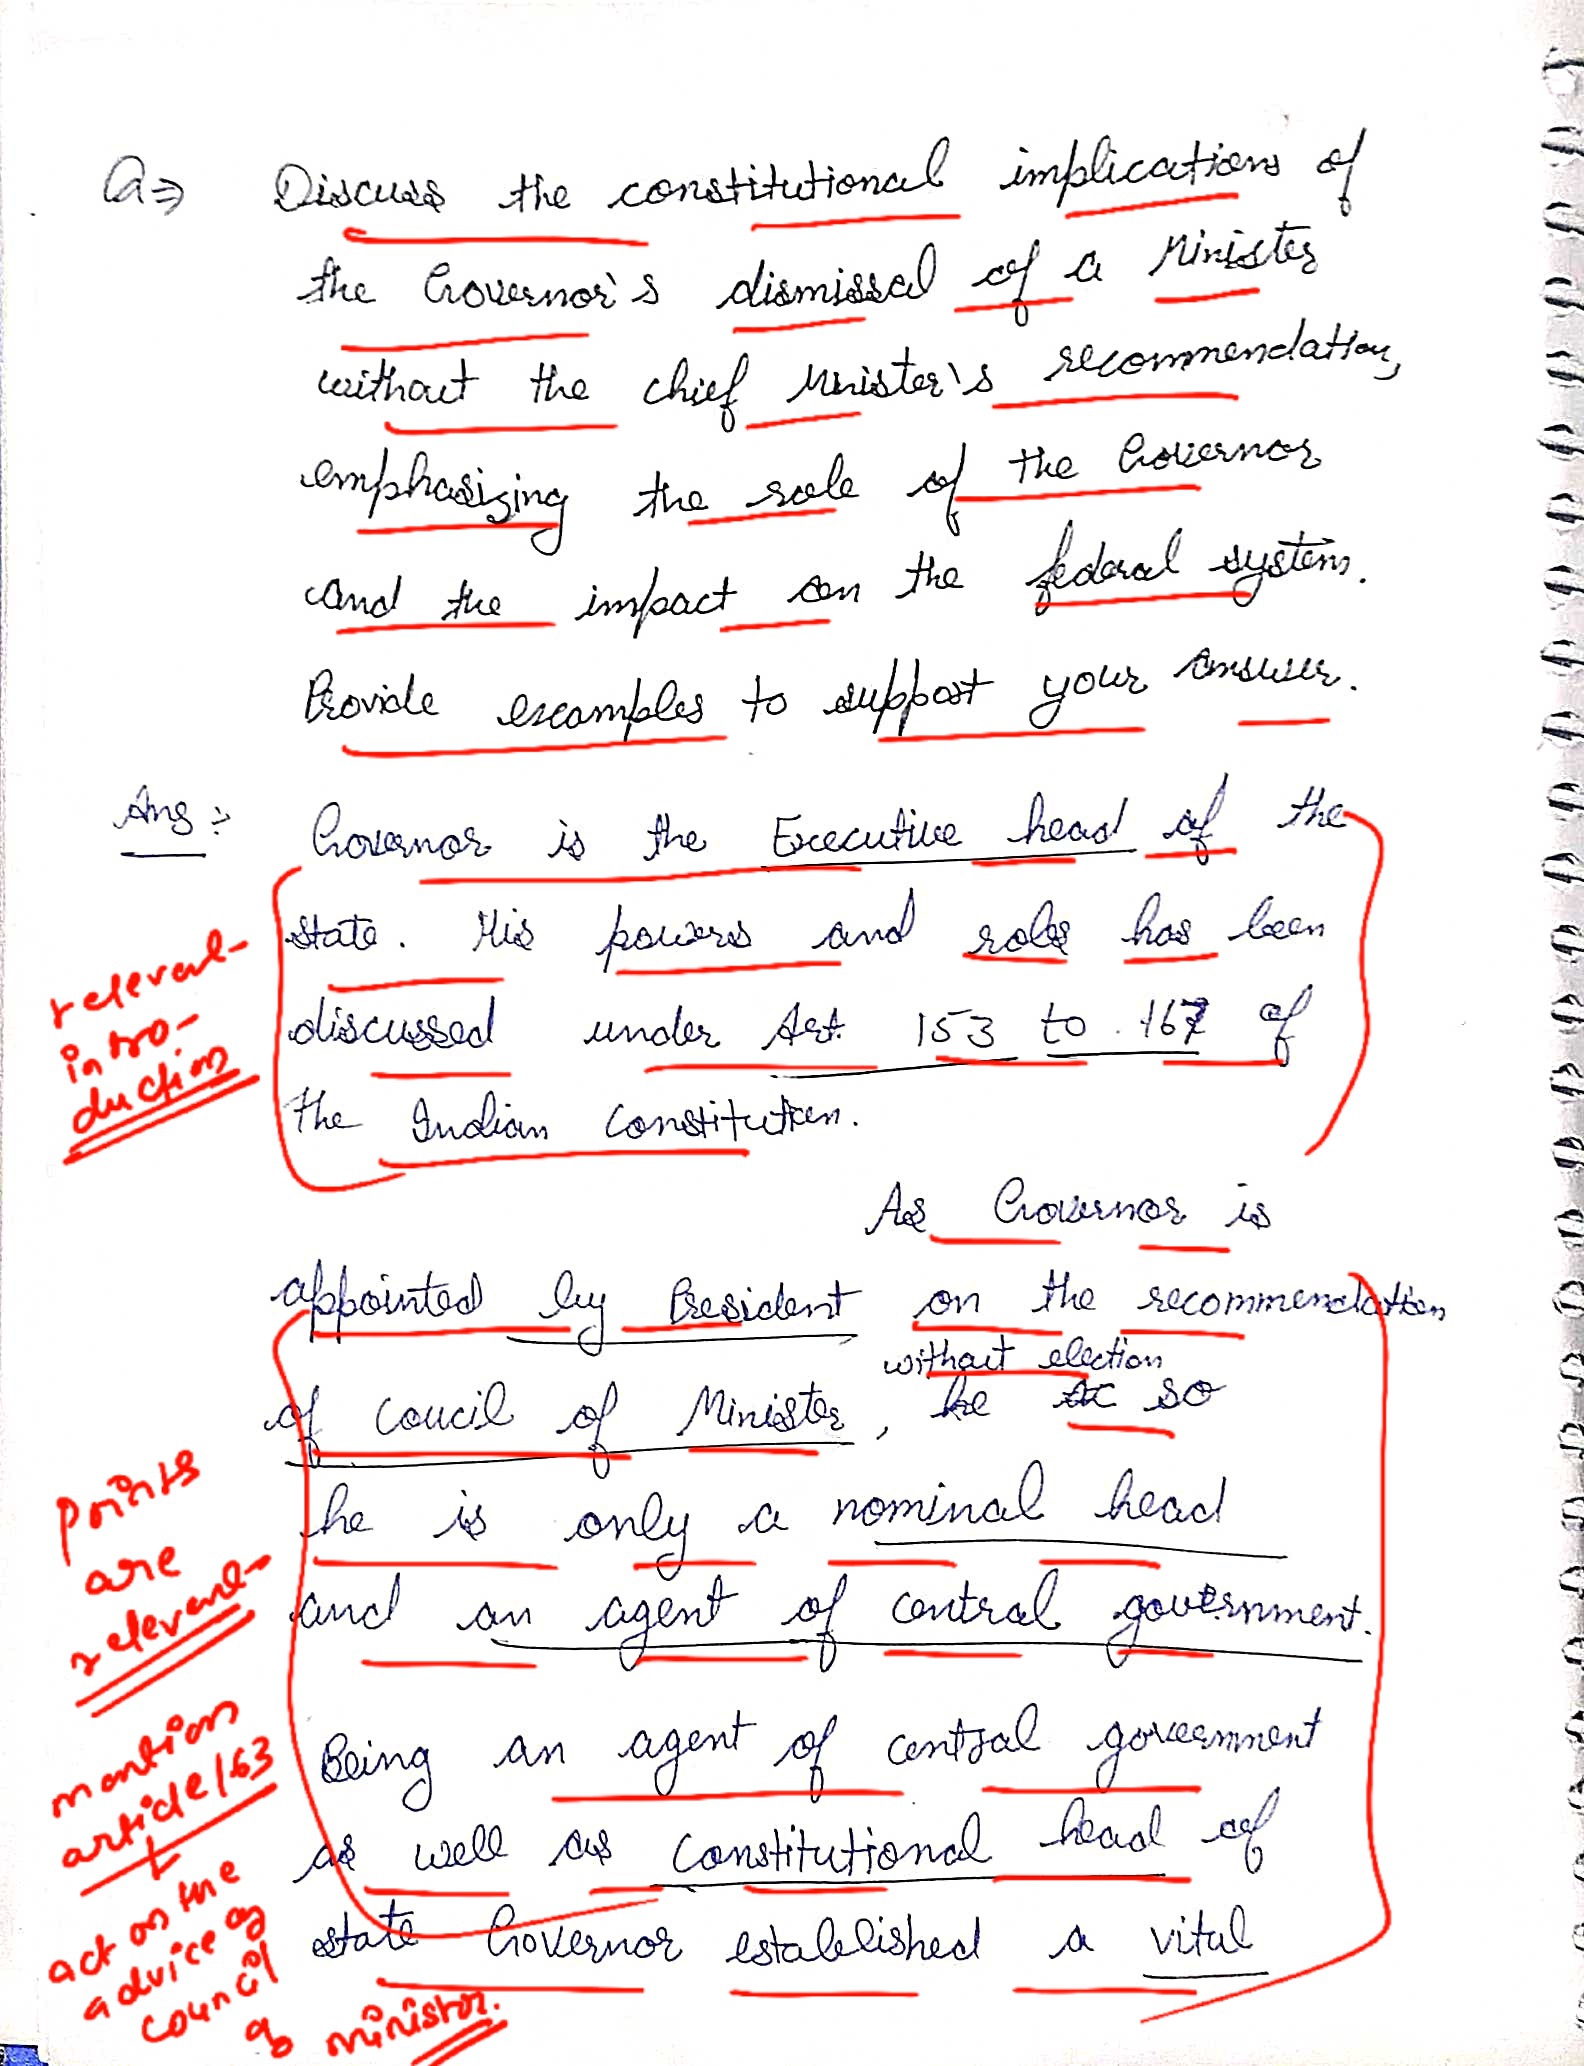 Q⇒ Discuss the constitutional implications of
the Governor's dismissal of a Minister
without the chief Minister's recommendation,
emphasizing the role of the Governor
and the impact on the federal system.
Provide examples to support your answer.
Ans :- Governor is the Executive head of the
state. His powers and roles has been
discussed under Art. 153 to 167 of
the Indian Constitution.
relevant
intro-
duction
As Governor is
appointed by President on the recommendation
without election
of Coucil of Minister, he so
he is only a nominal head
and an agent of central government.
Being an agent of central government
as well as Constitutional head of
state Governor established a vital
points
are
relevant
mention
article 163
act on the
advice of
council
of minister.